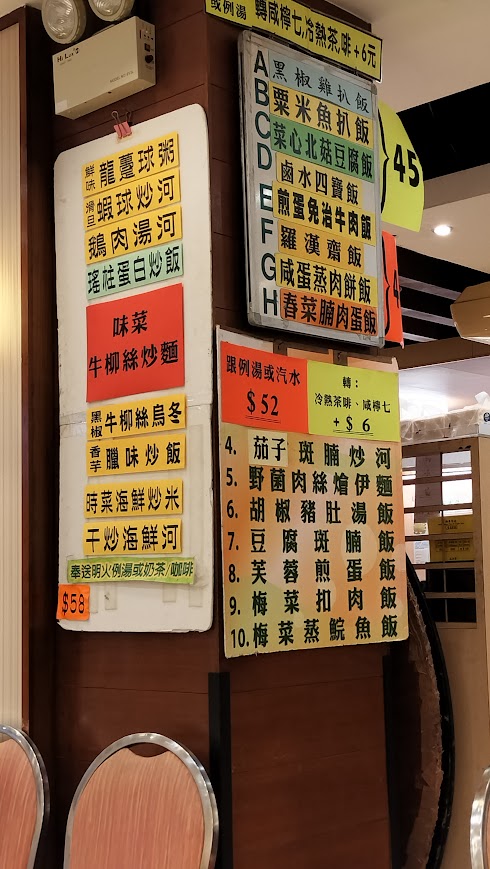 或例湯 轉咸檸七,冷熱茶,啡+6元
Hi-Lux
鮮味 龍躉球粥
滑旦 蝦球炒河
鵝肉湯河
瑤柱蛋白炒飯
味菜
牛柳絲炒麵
黑椒 牛柳絲烏冬
香芋 臘味炒飯
時菜海鮮炒米
干炒海鮮河
奉送明火例湯或奶茶/咖啡
$58
A 黑椒雞扒飯
B 粟米魚扒飯
C 菜心北菇豆腐飯
D 鹵水四寶飯
E 煎蛋免治牛肉飯
F 羅漢齋飯
G 咸蛋蒸肉餅飯
H 春菜腩肉蛋飯
45
4
跟例湯或汽水
$52
轉:
冷熱茶啡、咸檸七
+$6
4. 茄子斑腩炒河
5. 野菌肉絲燴伊麵
6. 胡椒豬肚湯飯
7. 豆腐斑腩飯
8. 芙蓉煎蛋飯
9. 梅菜扣肉飯
10. 梅菜蒸鯇魚飯